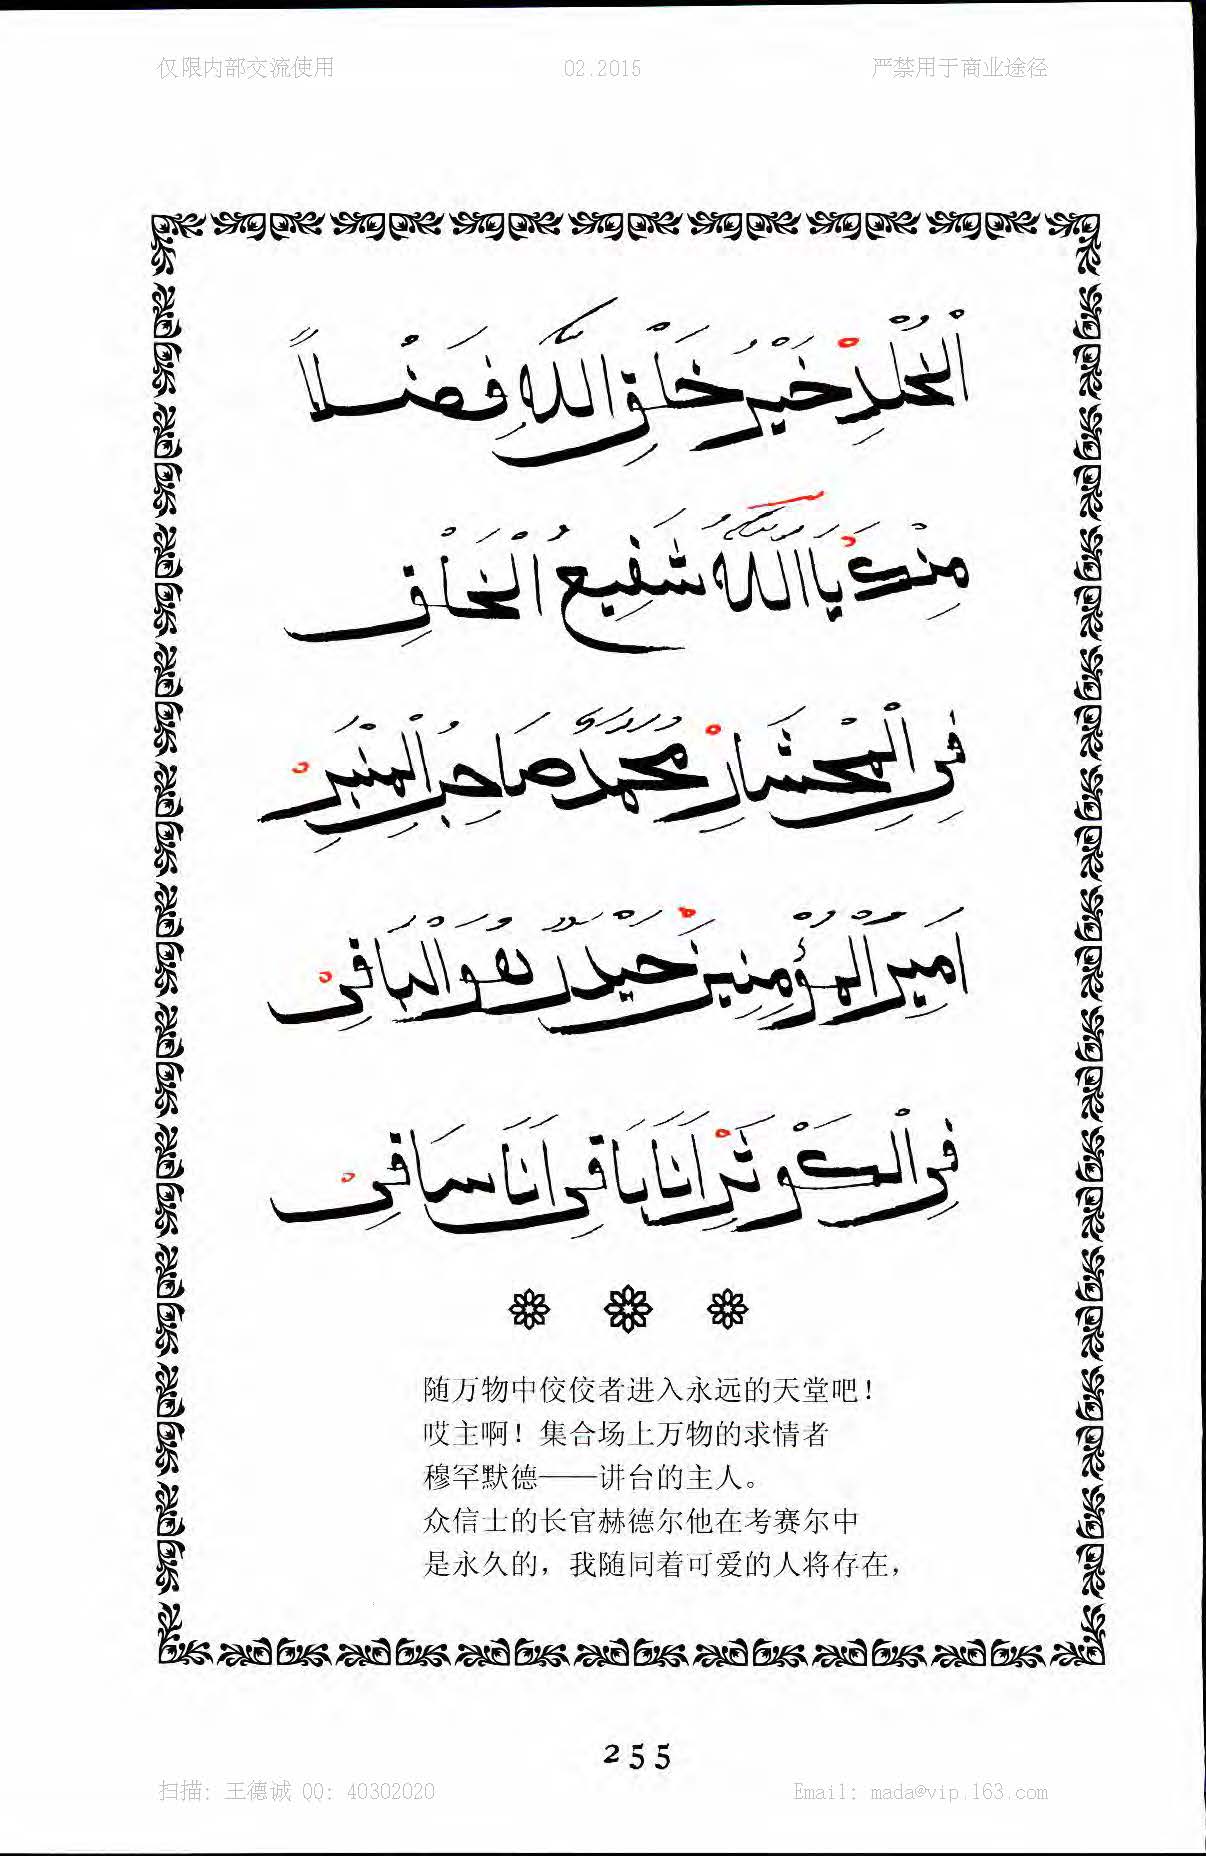 仅限内部交流使用 02.2015 严禁用于商业途径
اَلْخُلْدِ خَيْرُ خَلْقِ اللّٰهِ فَضْلاً
مِنْكَ يَا اَللّٰهُ شَفِيعُ الْخَلْقِ
فِي الْمَحْشَارْ مُحَمَّدْ صَاحِبُ الْمِنْبَرْ
اَمِيرُ الْمُؤْمِنِينْ حَيْدَرْ هُوَ الْبَاقِي
فِي الْكَوْثَرْ اَنَا بَاقِي اَنَا سَاقِي
随万物中佼佼者进入永远的天堂吧！
哎主啊！集合场上万物的求情者
穆罕默德——讲台的主人。
众信士的长官赫德尔他在考赛尔中
是永久的，我随同着可爱的人将存在，
255
扫描: 王德诚 QQ: 40302020 Email: mada@vip.163.com